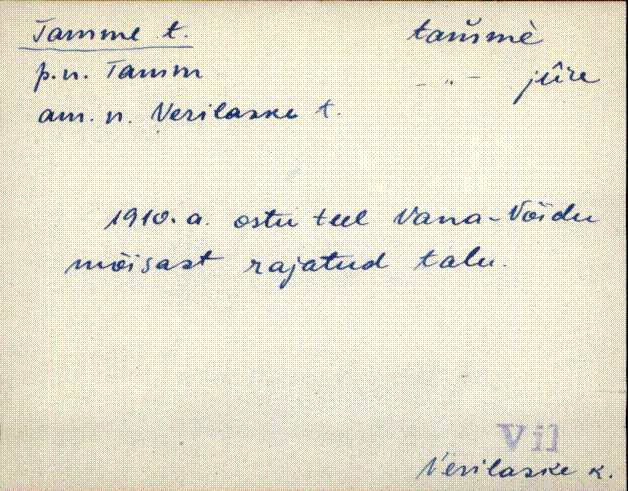 Tamme t. tam̆mè
p.n. Tamm -"- jûre
am. n. Verilaske t.
1910. a. ostu teel Vana-Võidu
mõisast rajatud talu.
Vil
Verilaske k.